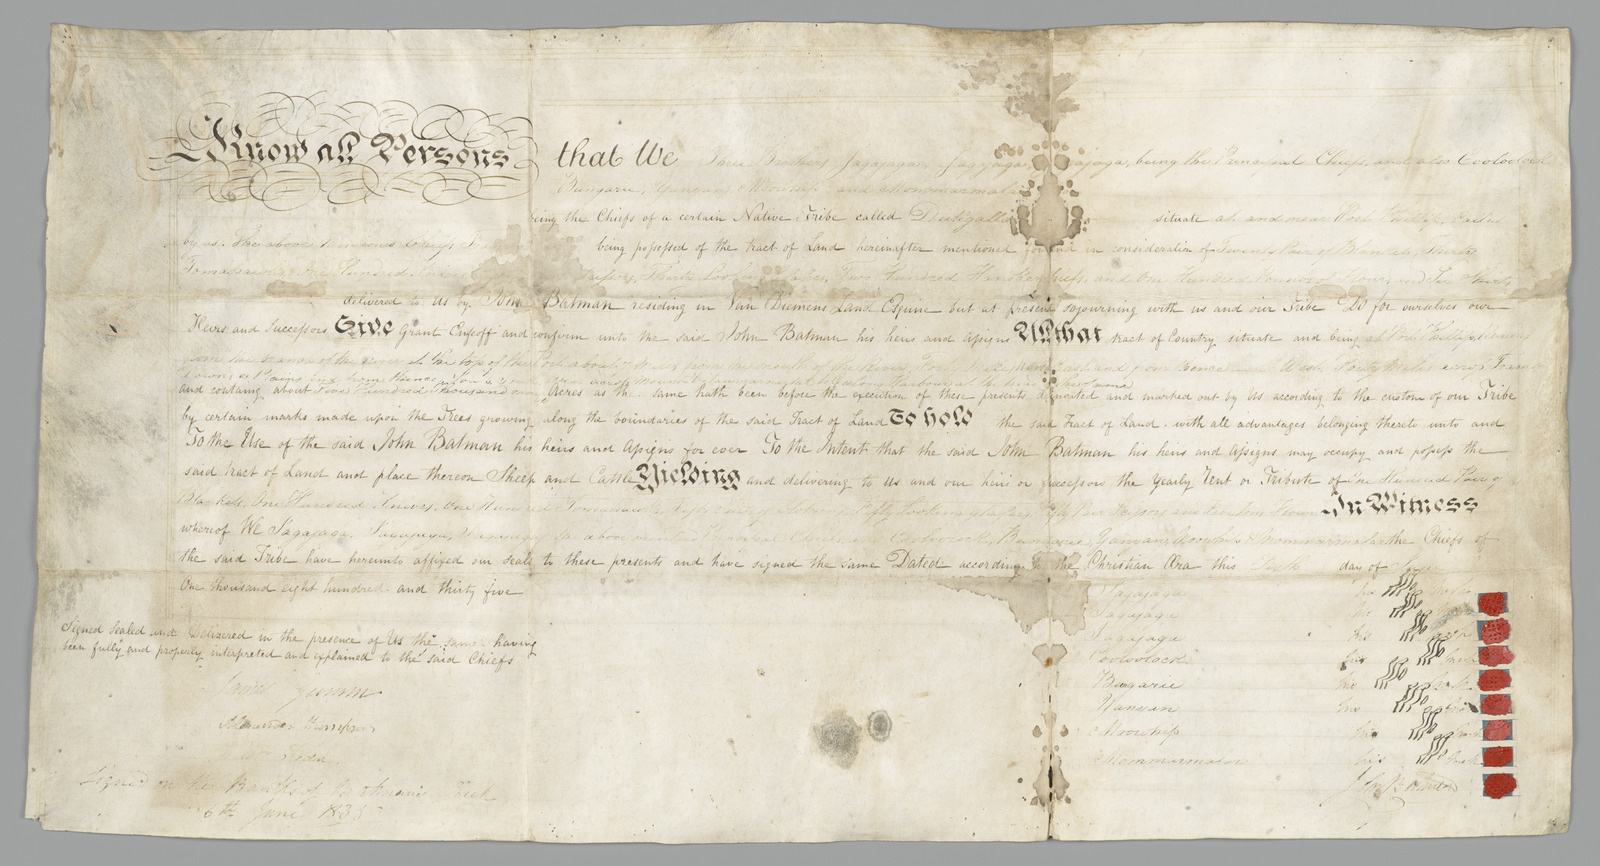 Know all Persons that We Three Brothers Jagajaga, Jagajaga, Jagajaga, being the Principal Chiefs, and also Cooloolock
Bungarie, Yanyan, Moowhip, and Mommarmalar
being the Chiefs of a certain Native Tribe called Dutigallar situate at and near Port Phillip, Called
by us, the above mentioned Chiefs, being possessed of the tract of Land hereinafter mentioned for and in consideration of Twenty Pair of Blankets, Thirty
Tomahawks, One Hundred Knives, Scissors, Thirty Looking Glasses, Two Hundred Handkerchiefs, and One Hundred Pounds of Flour, and Six Shirts
delivered to Us by John Batman residing in Van Diemens Land Esquire but at present sojourning with us and our Tribe Do for ourselves our
Heirs and Successors Give Grant Enfeoff and confirm unto the said John Batman his heirs and assigns All that tract of Country situate and being at Port Phillip, running
from the branch of the river at the top of the Port about 7 Miles from the mouth of the River, Forty Miles North East, and from thence West, Forty Miles across
and containg about Five Hundred Thousand Acres as the same hath been before the execution of these presents delineated and marked out by Us according to the custom of our Tribe
by certain marks made upon the Trees growing along the boundaries of the said Tract of Land To hold the said Tract of Land with all advantages belonging thereto unto and
To the Use of the said John Batman his heirs and assigns for ever To the Intent that the said John Batman his heirs and assigns may occupy and possess the
said tract of Land and place thereon Sheep and Cattle Yielding and delivering to Us and our heirs or successors the yearly Rent or Tribute of One Hundred Pair of
Blankets, One Hundred Knives, One Hundred Tomahawks, Fifty Looking glasses, Fifty Pair Scissors and Ten Tons Flour In Witness
whereof We Jagajaga, Jagajaga, Jagajaga the above mentioned Principal Chiefs and Cooloolock, Bungarie, Yanyan, Moowhip & Mommarmalar the Chiefs of
the said Tribe have hereunto affixed our seals to these presents and have signed the same Dated according to the Christian Æra this Sixth day of June
One thousand eight hundred and thirty five
Signed Sealed and Delivered in the presence of Us the same having
been fully and properly interpreted and explained to the said Chiefs
James Gumm
Alexander Thomson
Todd
Signed on the Banks of Batman's Creek
6th June 1835
Jagajaga his mark
Jagajaga his
Jagajaga his mark
Cooloolock his mark
Bungarie his mark
Yanyan his mark
Moowhip his mark
Mommarmalar his mark
John Batman